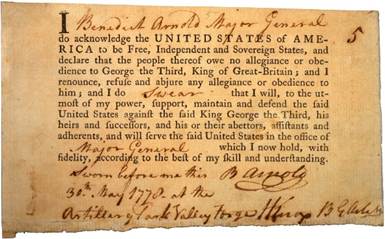 I Benedict Arnold Major General
do acknowledge the UNITED STATES of AME-
RICA to be Free, Independent and Sovereign States, and
declare that the people thereof owe no allegiance or obe-
dience to George the Third, King of Great-Britain; and I
renounce, refuse and abjure any allegiance or obedience to
him; and I do Swear that I will, to the ut-
most of my power, support, maintain and defend the said
United States against the said King George the Third, his
heirs and successors, and his or their abettors, assistants and
adherents, and will serve the said United States in the office of
Major General which I now hold, with
fidelity, according to the best of my skill and understanding.
Sworn before me this B Arnold
30th May 1778 at the
Artillery Park Valley Forge HKnox B G Artily
5